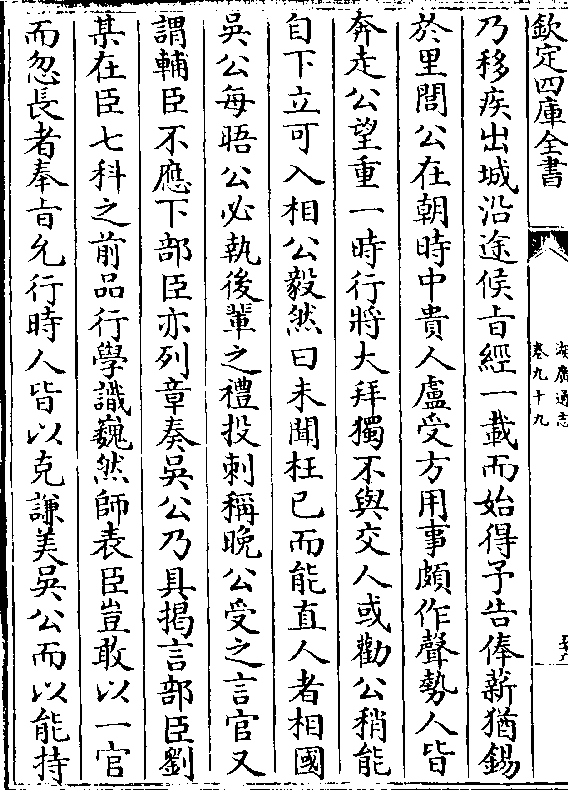 欽定四庫全書
湖廣通志
卷九十九
乃移疾出城沿途候㫖經一載而始得予告俸薪猶錫
於里閭公在朝時中貴人盧受方用事頗作聲勢人皆
奔走公望重一時行將大拜獨不與交人或勸公稍能
自下立可入相公毅然曰未聞枉已而能直人者相國
吳公每晤公必執後輩之禮投刺稱晚公受之言官又
謂輔臣不應下部臣亦列章奏吳公乃具揭言部臣劉
某在臣七科之前品行學識巍然師表臣豈敢以一官
而忽長者奉㫖允行時人皆以克謙美吳公而以能持